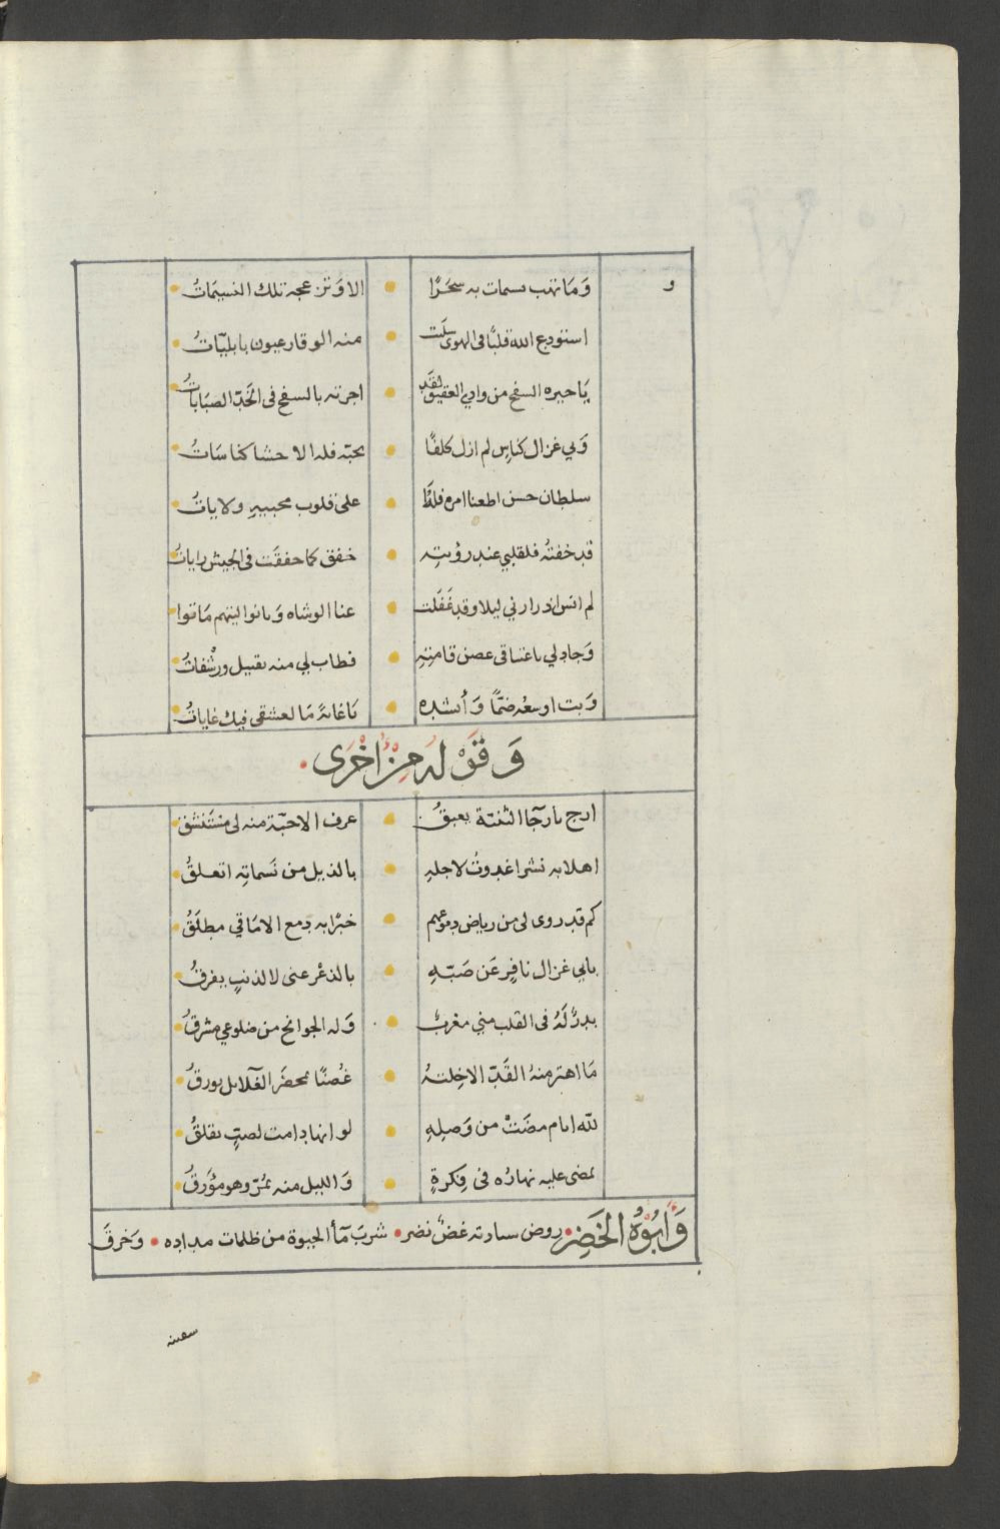 وَمَا تهب نسمات به سحَرًا • الا وَتزعجه تلك النسيمَاتُ
استودع الله قلبًا في الهوى سلَبت • منه الوقار عيون بابليّاتُ
يَا جيرة السفح من وادي العقيق لقَد • اجرته بالسفح في الخَدّ الصبَاباتُ
وَبي غزال كناسٍ لم ازل كلفًا • بحبّه فله الاحشا كناسَاتُ
سلطان حسن اطعنا امره فلهُ • على قلوب محبيهِ ولاياتُ
قد خفتهُ فلقلبي عند رؤيتهِ • خفق كما خفقَت في الجيش راياتُ
لم انس اذ زارني ليلا وقد غَفَلت • عنا الوشاه وَباتوا ليتهم مَاتوا
وَجاد لي باعتناقي غصن قامتهِ • فطاب لي منه تقبيل ورشفاتُ
وَبت اوسعُه ضمًّا وَأنشده • يَا غايةً مَا لعشقي فيك غاياتُ
وَقَوْلهُ مِنْ اُخْرَى
ارج بارجَا الثنيّة يعبقُ • عرف الاحبّة منه لي مستَنشقُ
اهلا به نشرا غدوتُ لاجلهِ • بالذيل من نَسماتهِ اتعلقُ
كم قد روى لي من رياض دموعهم • خبرًا به دمع الامَاقي مطلَقُ
بابي غزال نافرٍ عَن صَبّهِ • بالذعْر عني لا لذنبٍ يفرقُ
بدرٌ لَهُ في القلب مني مغربٌ • وَله الجوانح من ضلوعي مشرقُ
مَا اهتز منهُ القَدّ الا خِلتهُ • غُصنًا بخضرَ الغَلائل يورقُ
لله ايام مضَتْ من وَصلهِ • لو انها دامت لصبٍّ يقلقُ
يمضي عليه نهارُه في فِكرةٍ • وَالليل منه يمُرّ وهو مؤَرقُ
وَاَبُوُهُ الخَضِرِ • روض سيادته غضٌ نضر • شربَ مآأ الحيوة من ظلمات مداده • وَخرقَ
سفينه